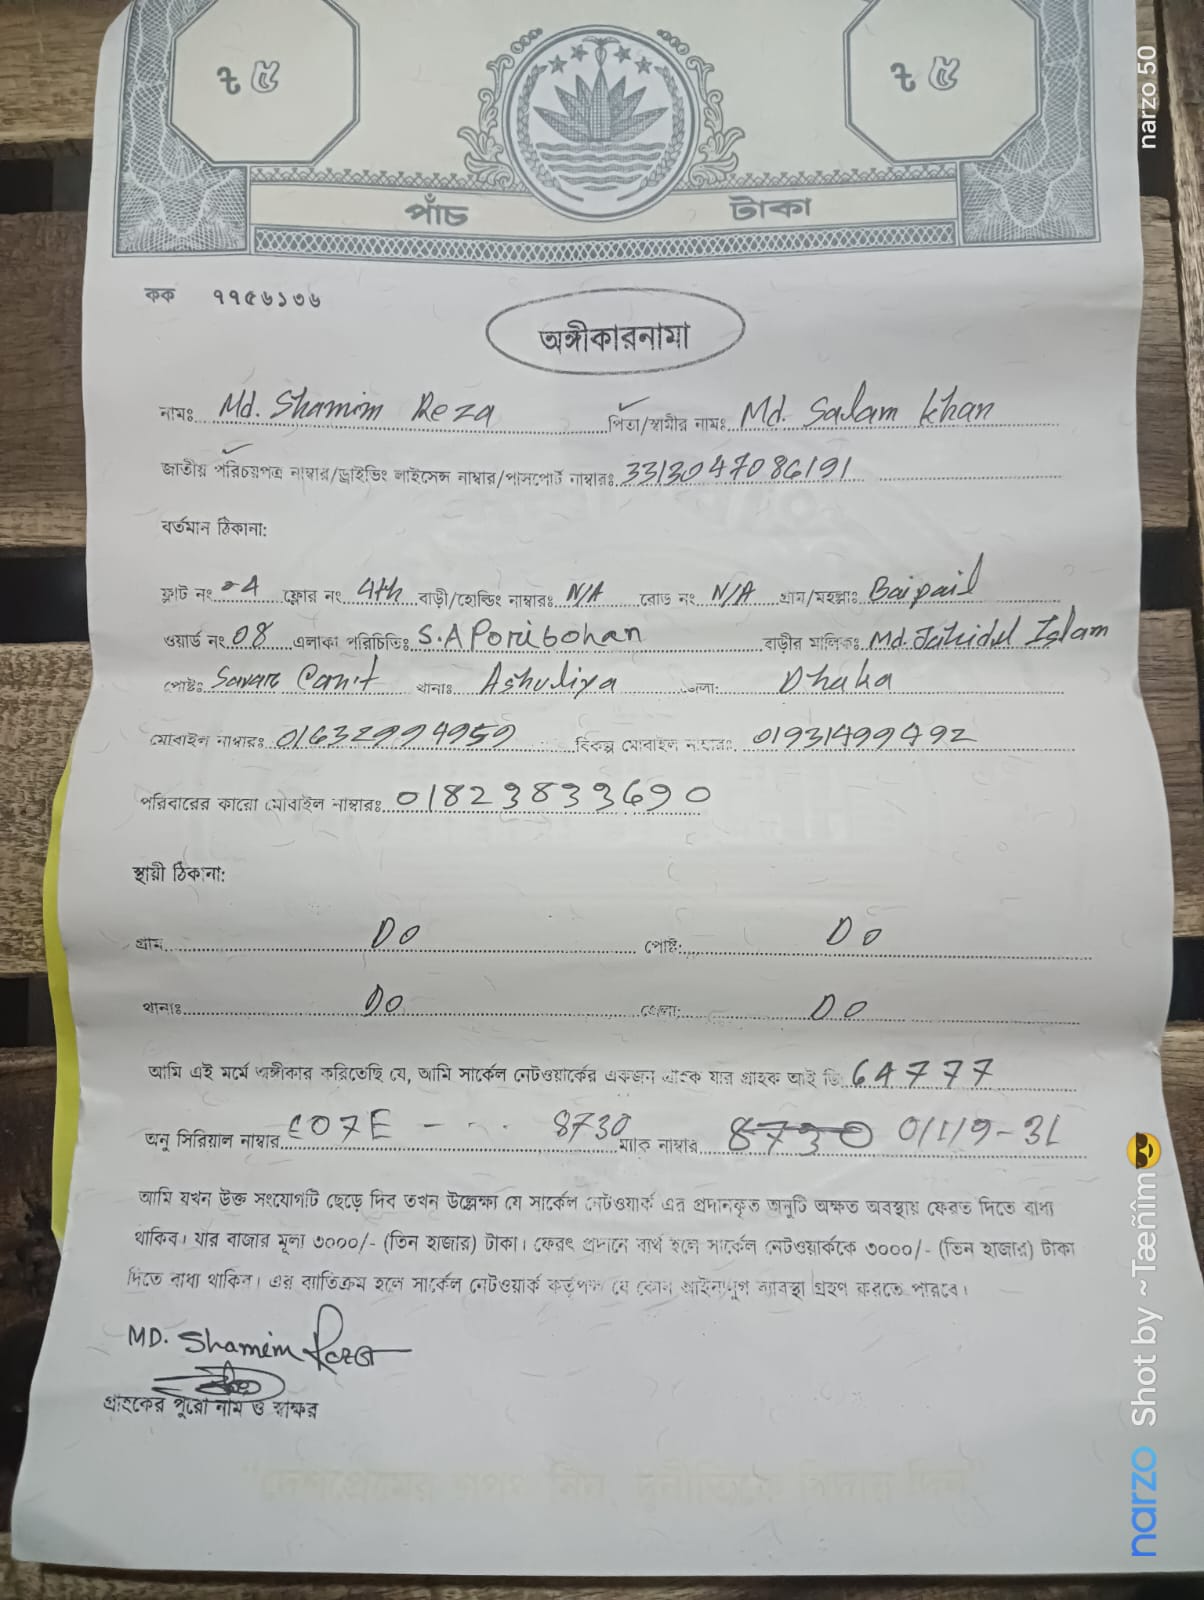 ৳ ৫ ৳ ৫
পাঁচ টাকা
কক ৭৭৫৬১৩৬
অঙ্গীকারনামা
নামঃ Md. Shamim Reza পিতা/স্বামীর নামঃ Md. Salam Khan
জাতীয় পরিচয়পত্র নাম্বার/ড্রাইভিং লাইসেন্স নাম্বার/পাসপোর্ট নাম্বারঃ 3313047086191
বর্তমান ঠিকানা:
ফ্লাট নং -4 ফ্লোর নং 4th বাড়ী/হোল্ডিং নাম্বারঃ N/A রোড নং N/A গ্রাম/মহল্লাঃ Baipail
ওয়ার্ড নং 08 এলাকা পরিচিতিঃ S.A Poribohan বাড়ীর মালিকঃ Md. Jahidul Islam
পোষ্টঃ Savar Cannt থানাঃ Ashuliya জেলা: Dhaka
মোবাইল নাম্বারঃ 01632994959 বিকল্প মোবাইল নাম্বারঃ 01931499492
পরিবারের কারো মোবাইল নাম্বারঃ 01823833690
স্থায়ী ঠিকানা:
গ্রাম Do পোষ্ট: Do
থানাঃ Do জেলা: Do
আমি এই মর্মে অঙ্গীকার করিতেছি যে, আমি সার্কেল নেটওয়ার্কের একজন গ্রাহক যার গ্রাহক আই ডি 64777
অনু সিরিয়াল নাম্বার C07E - - - 8730 ম্যাক নাম্বার 01119-31
আমি যখন উক্ত সংযোগটি ছেড়ে দিব তখন উল্লেক্ষ্য যে সার্কেল নেটওয়ার্ক এর প্রদানকৃত অনুটি অক্ষত অবস্থায় ফেরত দিতে বাধ্য
থাকিব। যার বাজার মূল্য ৩০০০/- (তিন হাজার) টাকা। ফেরৎ প্রদানে ব্যর্থ হলে সার্কেল নেটওয়ার্ককে ৩০০০/- (তিন হাজার) টাকা
দিতে বাধ্য থাকিব। এর ব্যতিক্রম হলে সার্কেল নেটওয়ার্ক কর্তৃপক্ষ যে কোন আইনানুগ ব্যবস্থা গ্রহণ করতে পারবে।
MD. Shamim Reza
গ্রাহকের পুরো নাম ও স্বাক্ষর
"দেশপ্রেমের শপথ নিন, দুর্নীতিকে বিদায় দিন"
narzo 50
narzo Shot by ~Tæñîm😎